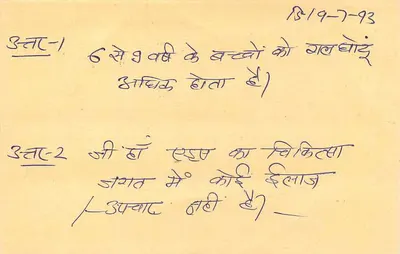 दि 19-7-93
उत्तर-1
6 से 9 वर्ष के बच्चों को गलघोंटू
अधिक होता है।
उत्तर-2 जी हाँ एड्स का चिकित्सा
जगत में कोई ईलाज
/-उपचार नहीं है।-